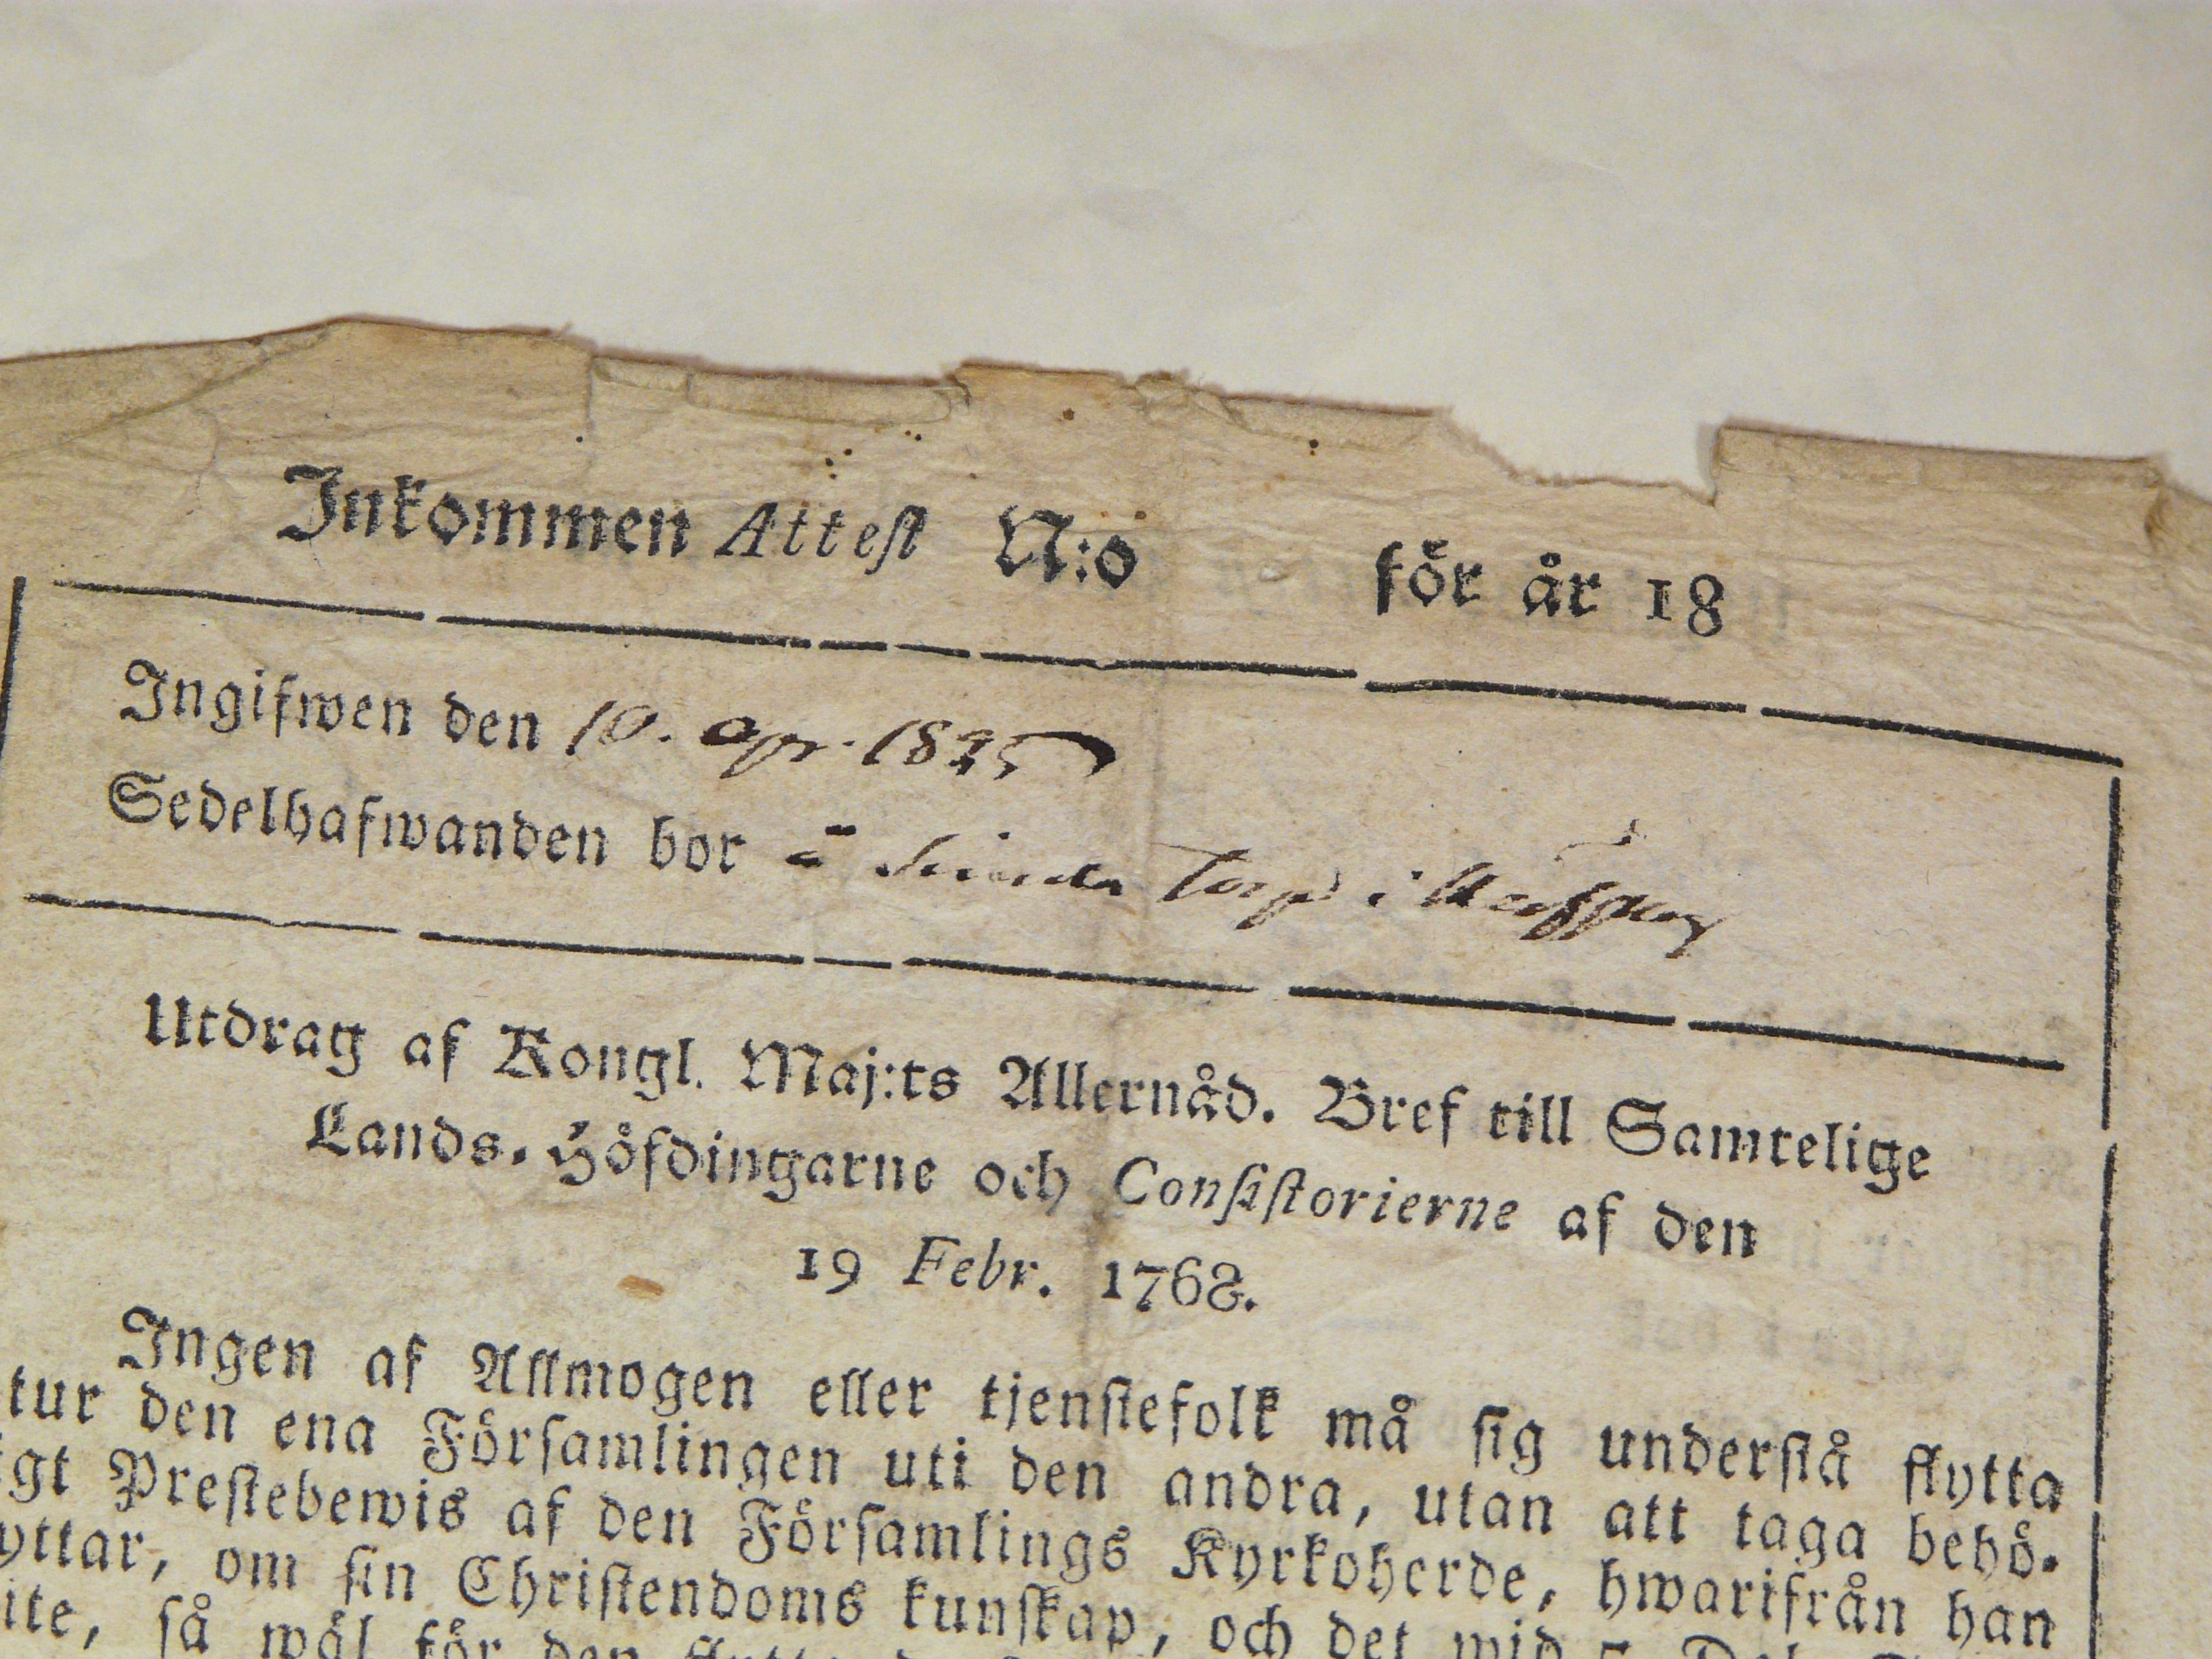 Inkommen Attest N:o för år 18
Ingifwen den 10. Apr. 1825
Sedelhafwanden bor å Torp i
Utdrag af Kongl. Maj:ts Allernåd. Bref till Samtelige
Lands-Höfdingarne och Consistorierne af den
19 Febr. 1768.
Ingen af Allmogen eller tjenstefolk må sig understå flytta
tur den ena Församlingen uti den andra, utan att taga behö-
igt Prestebewis af den Församlings Kyrkoherde, hwarifrån han
yttar, om sin Christendoms kunskap, och det wid 5
ite, så wäl för den